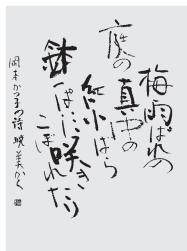 梅雨ばれの
庭の真中の
紅小ばら
鉢いっぱいに咲き
こぼれたり
岡本かの子の詩 暁美かく